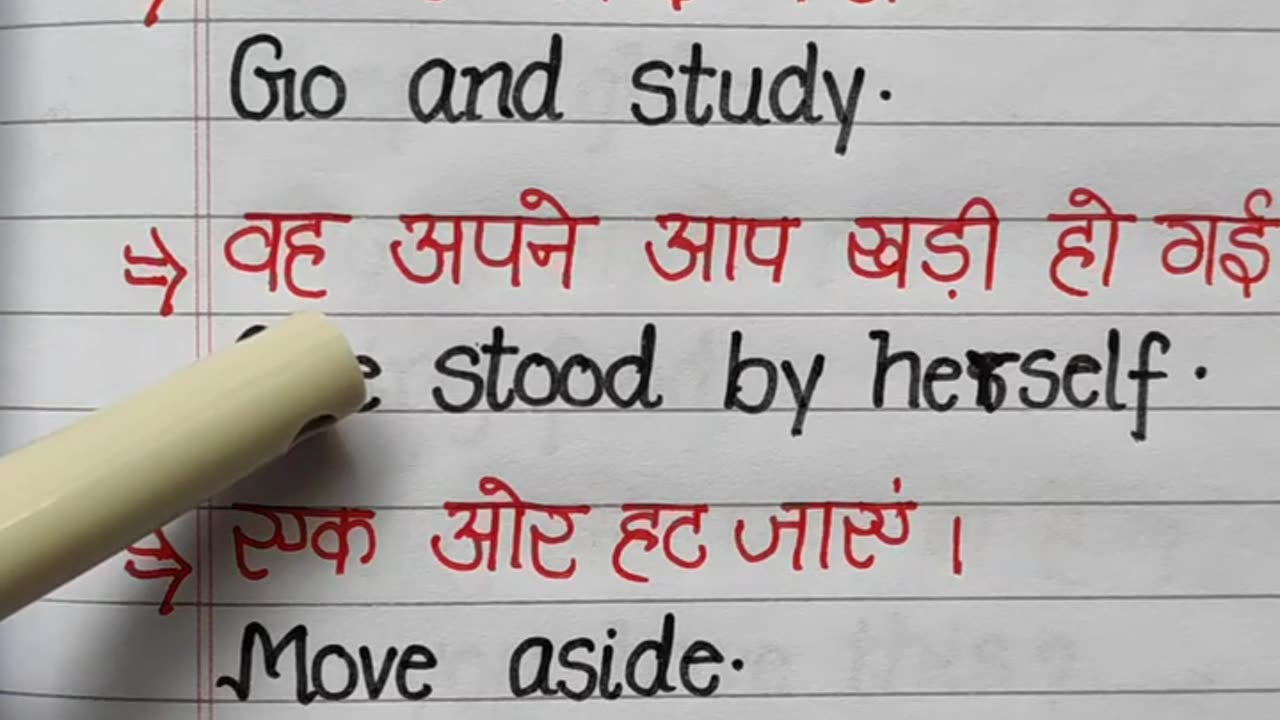 Go and study.
वह अपने आप खड़ी हो गई
stood by herself.
एक ओर हट जाएं।
Move aside.